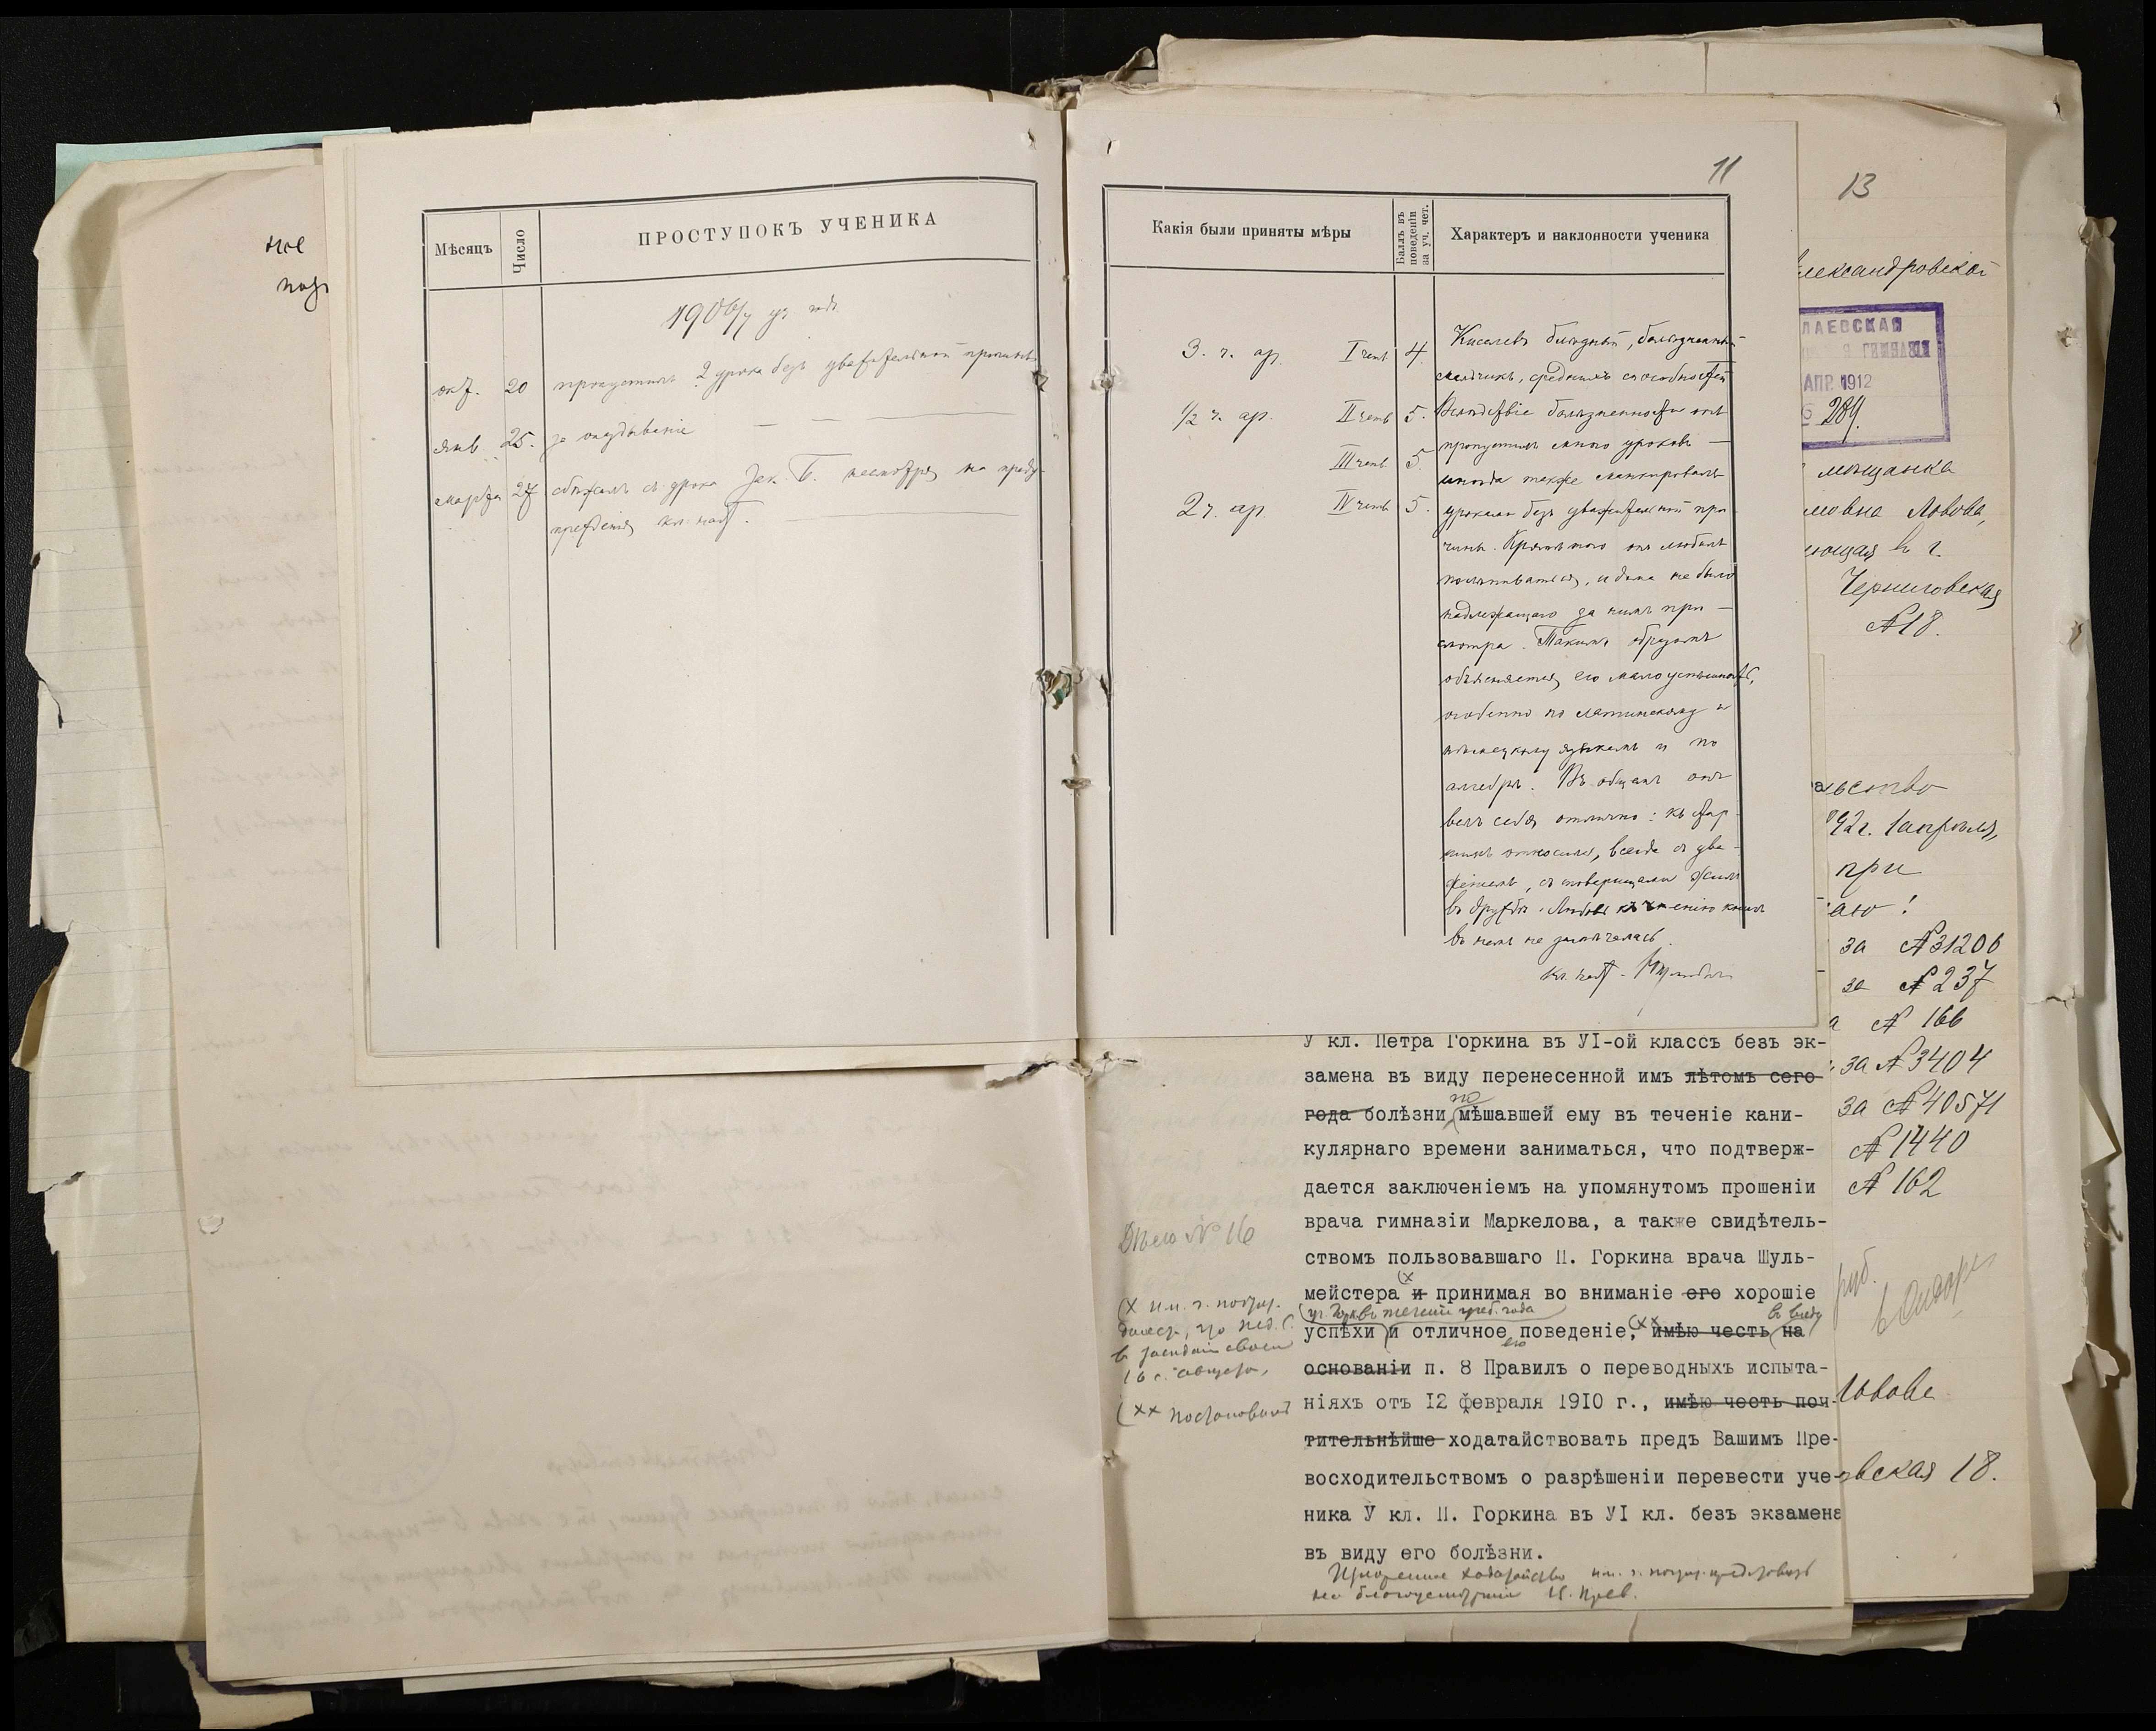 не
11
13
Мѣсяцъ
Число
ПРОСТУПОКЪ УЧЕНИКА
1906/7 уч. годъ
окт. 20 пропустилъ 2 урока безъ уважительной причины
янв. 25. за опаздываніе — —
марта 27 сбѣжалъ съ урока Зак. Б. несмотря на преду-
прежденія кл. наст.
Какія были приняты мѣры
Баллъ въ поведеніи за уч. чет.
Характеръ и наклонности ученика
3. ч. ар. I четв. 4.
1/2 ч. ар. II четв. 5.
III четв. 5.
2 ч. ар. IV четв. 5.
Киселевъ блѣдный, болѣзненный
мальчикъ, среднихъ способностей
Вслѣдствіе болѣзненности онъ
пропустилъ много уроковъ —
иногда также манкировалъ
уроками безъ уважительной при-
чины. Кромѣ того онъ любилъ
полѣниваться, и дома не было
надлежащаго за нимъ при-
смотра. Такимъ образомъ
объясняется его малоуспѣшность,
особенно по латинскому и
нѣмецкому языкамъ и по
алгебрѣ. Въ общемъ онъ
велъ себя отлично: къ стар-
шимъ относился всегда съ ува-
женіемъ, съ товарищами жилъ
въ дружбѣ. Любви къ чтенію книгъ
въ немъ не замѣчалась.
кл. наст.
лександровской
ЛАЕВСКАЯ
ГИМНАЗІЯ
АПР. 1912
289.
мѣщанка
Львова,
ющая въ г.
Черниговская
№ 18.
льство
92 г. 1 апрѣля,
при
аю!
за № 31206
за № 237
а № 166
за № 3404
за № 40571
№ 1440
№ 162
руб.
Львова
вская 18.
У кл. Петра Горкина въ УІ-ой классъ безъ эк-
замена въ виду перенесенной имъ лѣтомъ сего
года болѣзни по мѣшавшей ему въ теченіе кани-
кулярнаго времени заниматься, что подтверж-
дается заключеніемъ на упомянутомъ прошеніи
врача гимназіи Маркелова, а также свидѣтель-
ствомъ пользовавшаго П. Горкина врача Шуль-
мейстера (х и принимая во вниманіе его хорошіе
уч. Горк. въ теченіи учеб. года
успѣхи и отличное его поведеніе, (хх имѣю честь въ виду на
основаніи п. 8 Правилъ о переводныхъ испыта-
ніяхъ отъ 12 февраля 1910 г., имѣю честь поч-
тительнѣйше ходатайствовать предъ Вашимъ Пре-
восходительствомъ о разрѣшеніи перевести уче-
ника У кл. П. Горкина въ УІ кл. безъ экзамена
въ виду его болѣзни.
Изложенное ходатайство им. ч. почт. представить
на благоусмотрѣніе В. Прев.
Дѣло № 16
(х им. ч. почт.
донести, что Пед. С.
въ засѣданіи своемъ
16 с. августа,
(хх постановилъ